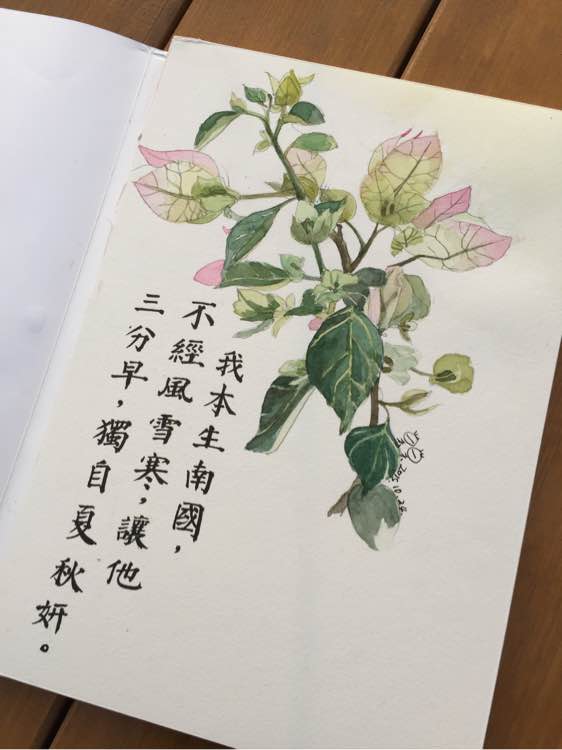 我本生南國，
不經風雪寒，讓他
三分早，獨自夏秋妍。
2015.10.28